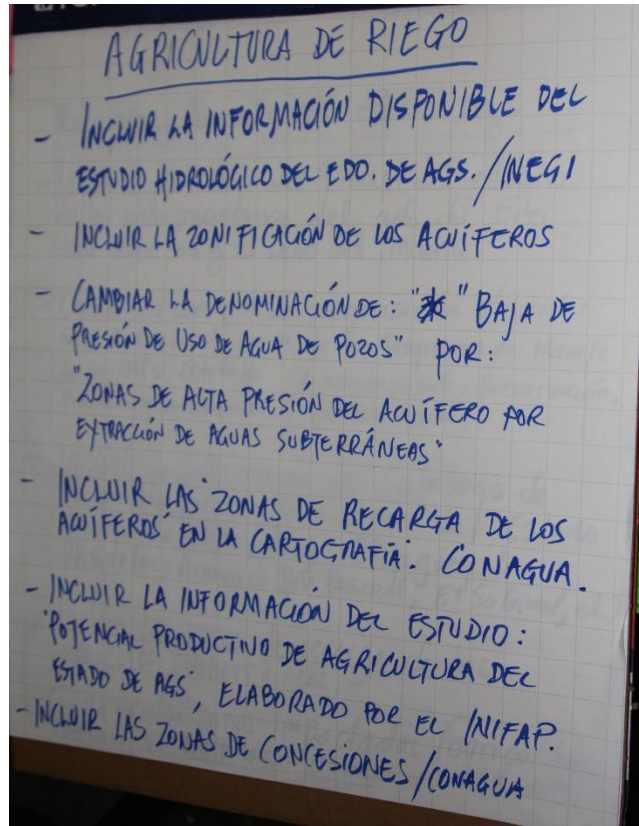 AGRICULTURA DE RIEGO
- INCLUIR LA INFORMACIÓN DISPONIBLE DEL
ESTUDIO HIDROLÓGICO DEL EDO. DE AGS./INEGI
- INCLUIR LA ZONIFICACIÓN DE LOS ACUÍFEROS
- CAMBIAR LA DENOMINACIÓN DE: " " BAJA DE
PRESIÓN DE USO DE AGUA DE POZOS" POR:
"ZONAS DE ALTA PRESIÓN DEL ACUÍFERO POR
EXTRACCIÓN DE AGUAS SUBTERRÁNEAS"
- INCLUIR LAS "ZONAS DE RECARGA DE LOS
ACUÍFEROS" EN LA CARTOGRAFÍA. CONAGUA.
- INCLUIR LA INFORMACIÓN DEL ESTUDIO:
"POTENCIAL PRODUCTIVO DE AGRICULTURA DEL
ESTADO DE AGS", ELABORADO POR EL INIFAP.
- INCLUIR LAS ZONAS DE CONCESIONES/CONAGUA